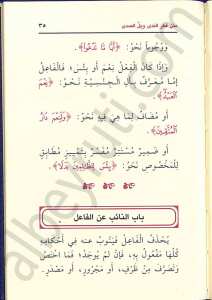 متن قطر الندى وبل الصدى
٣٥
وَوُجُوباً نَحْوُ: ﴿أَيًّا مَّا تَدْعُوا﴾.
وَإِذَا كَانَ الْفِعْلُ نِعْمَ أَوْ بِئْسَ؛ فَالْفَاعِلُ
إِمَّا مُعَرَّفٌ بِأَلِ الْجِنْسِيَّةِ نَحْوُ: ﴿نِعْمَ
الْعَبْدُ﴾.
أَوْ مُضَافٌ لِمَا هِيَ فِيهِ نَحْوُ: ﴿وَلَنِعْمَ دَارُ
الْمُتَّقِينَ﴾.
أَوْ ضَمِيرٌ مُسْتَتِرٌ مُفَسَّرٌ بِتَمْيِيزٍ مُطَابِقٍ
لِلْمَخْصُوصِ نَحْوُ: ﴿بِئْسَ لِلظَّالِمِينَ بَدَلًا﴾.
باب النائب عن الفاعل
يُحْذَفُ الْفَاعِلُ فَيَنُوبُ عَنْهُ فِي أَحْكَامِهِ
كُلِّهَا مَفْعُولٌ بِهِ، فَإِنْ لَمْ يُوجَدْ؛ فَمَا اخْتَصَّ
وَتَصَرَّفَ مِنْ ظَرْفٍ، أَوْ مَجْرُورٍ، أَوْ مَصْدَرٍ.
albeyruti.com